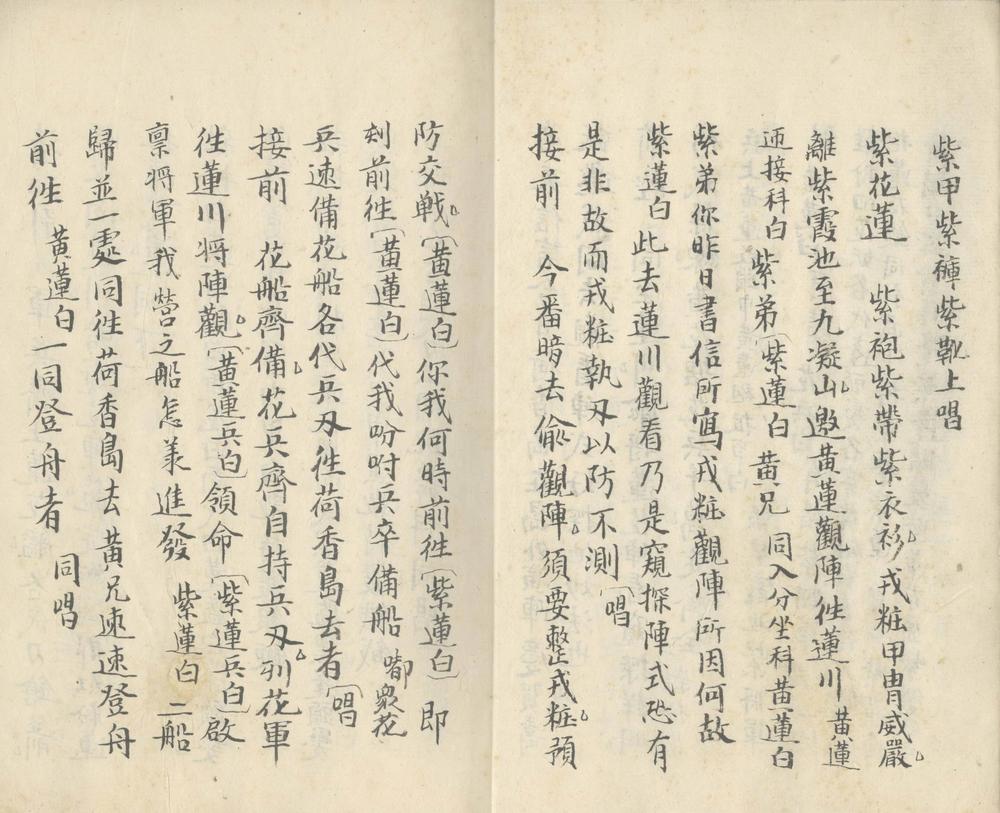 紫甲紫褲紫靴上唱
紫花蓮　紫袍紫帶紫衣衫戎粧甲冑威嚴
離紫霞池至九凝山邀黃蓮觀陣徃蓮川　黃蓮
迊接科白　紫弟　紫蓮白　黃兄　同入分坐科黃蓮白
紫弟你昨日書信所寫戎粧觀陣所因何故
紫蓮白　此去蓮川觀看乃是窺探陣式恐有
是非故而戎粧執刃以防不測　唱
接前　今番暗去偷觀陣須要整戎粧預
防交戰　黃蓮白　你我何時前徃　紫蓮白　即
刻前徃　黃蓮白　代我吩咐兵卒備船　嘟眾花
兵速備花船各代兵刃徃荷香島去者　唱
接前　花船齊備花兵齊自持兵刃列花軍
徃蓮川將陣觀　黃蓮兵白　領命　紫蓮兵白　啟
稟將軍我營之船怎樣進發　紫蓮白　二船
歸並一處同徃荷香島去黃兄速速登舟
前徃　黃蓮白　一同登舟者　同唱